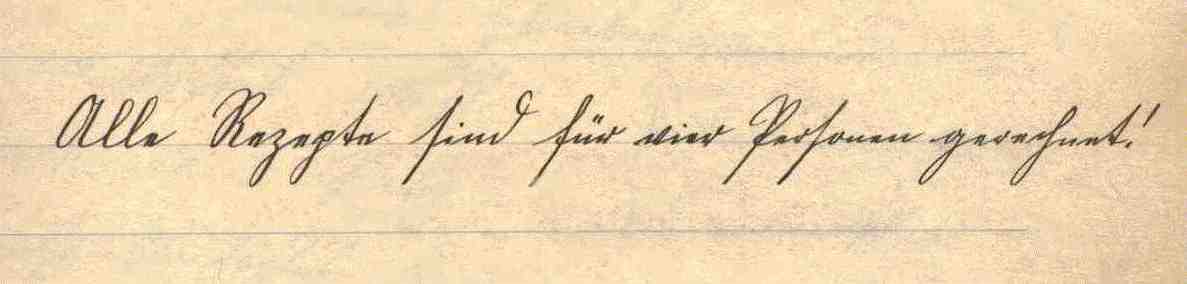 Alle Rezepte sind für vier Personen gerechnet!